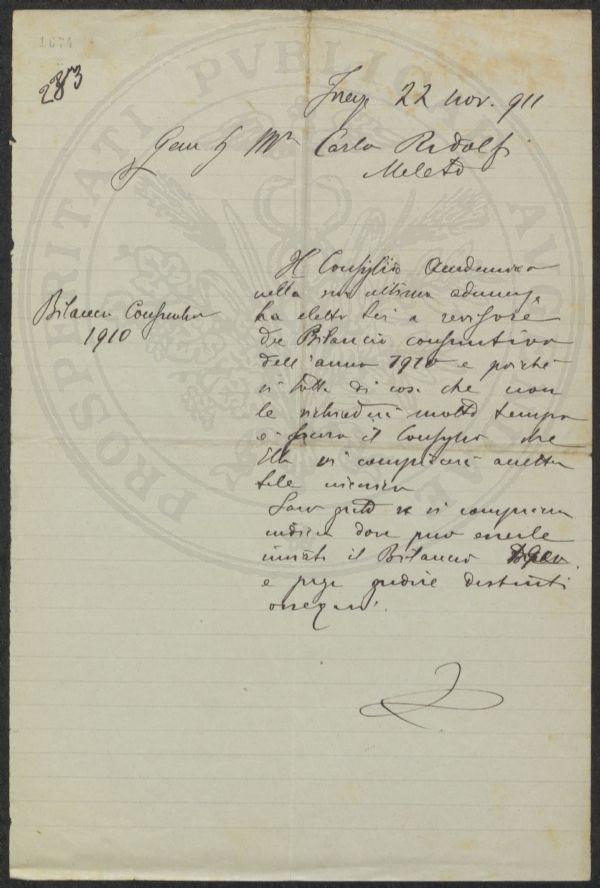 1674
283
Firenze 22 nov. 911
Gen Sig Mse Carlo Ridolfi
Meleto
Bilancio Consuntivo
1910
Il Consiglio Accademico
nella sua ultima adunanza
ha eletto Lei a revisore
del Bilancio consuntivo
dell'anno 1910 e poiché
si tratta di cosa che non
le richiederà molto tempo
è sicuro il Consiglio che
Ella si compiacerà accettare
tale incarico
Sarò grato se si compiacerà
indicare dove può essere
inviato il Bilancio
e prego gradire distinti
ossequi.
PROSPERITATI PUBLICAE AU